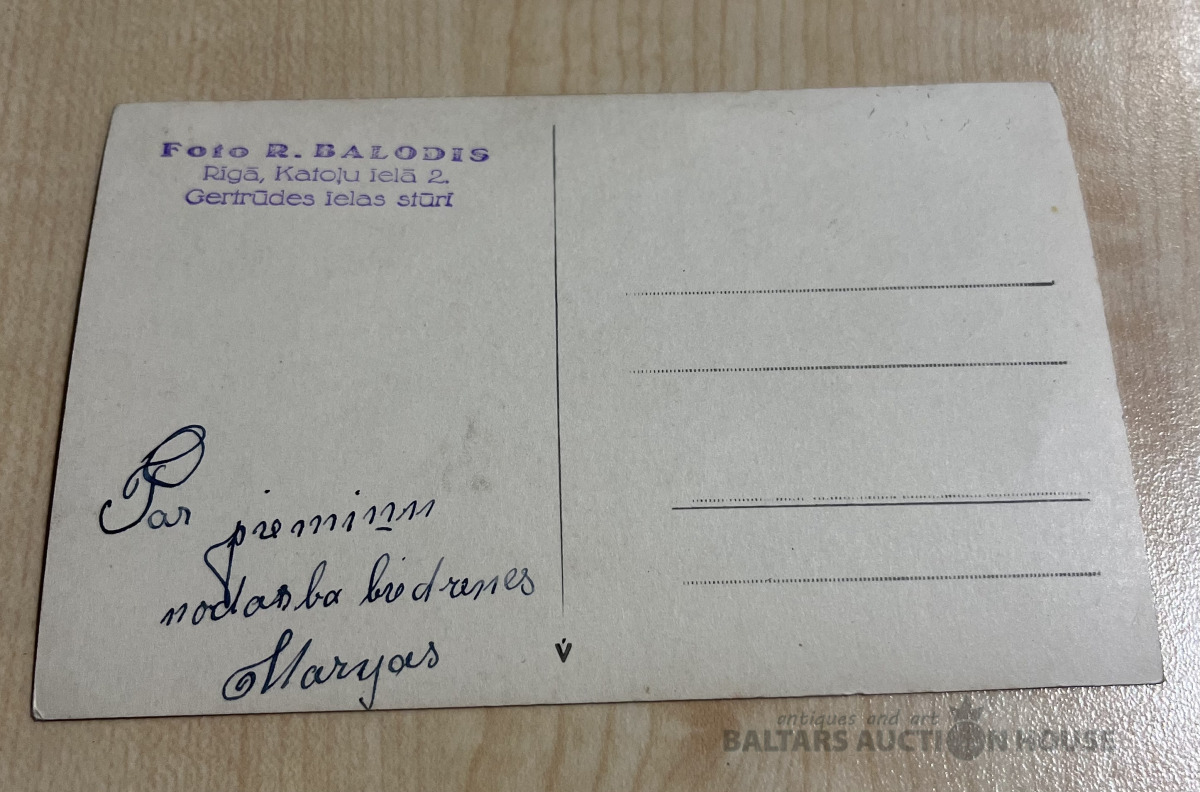 Foto R. BALODIS
Rīgā, Katoļu ielā 2.
Ģertrūdes ielas stūrī
Par
premiņu
nodarba biedrenes
Maryas
V
antiques and art
BALTARS AUCTION HOUSE